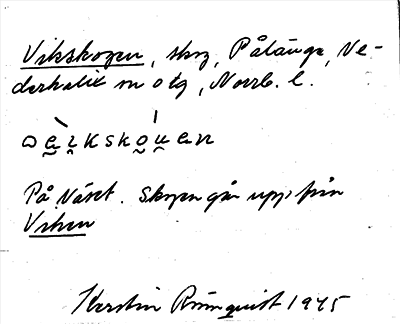 Vikskogen, skog, Pålänge, Ne-
derkalix sn o tg, Norrb. l.
På Näset. Skogen går upp från
Viken
Kerstin Rönnquist 1945